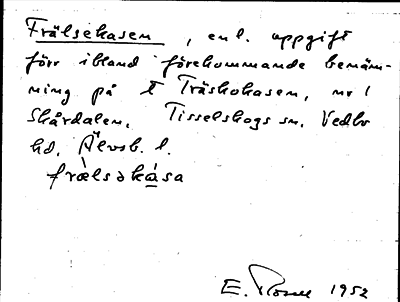 Frälsekasen, enl. uppgift
förr ibland förekommande benäm-
ning på t Träskokasen, nr 1
Skårdalen. Tisselskogs sn. Vedbo
hd. Älvsb. l.
fræ̀lsəkása
E. 1952